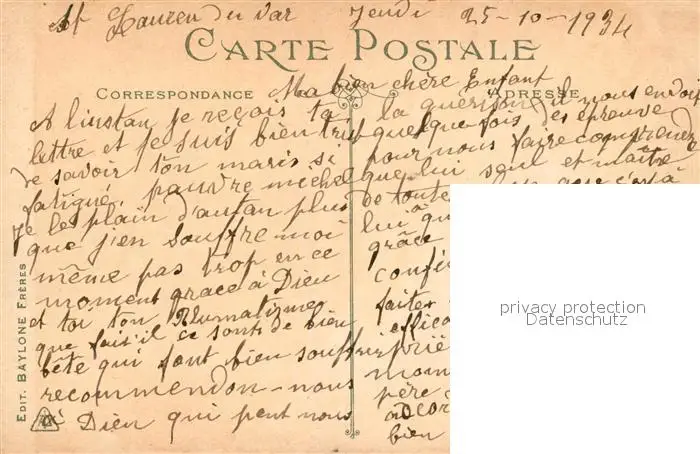 St Lauren du Var Jeudi 25-10-1934
CARTE POSTALE
CORRESPONDANCE
ADRESSE
Ma bien chère Enfant
A linstan je reçois ta
lettre et je suis bien trist
de savoir ton maris si
fatigué. pauvre michel
je les plain d'autan plus
que j'en souffre moi
même pas trop en ce
moment grace à Dieu
et toi ton Rhumatizme
que fais'il ce sont de bien
bête qui font bien souffrir
recommendon-nous
à Dieu qui peut nous
la guérison il nous envoi
quelque fois des épreuve
pour nous faire comprendre
que lui seul et maître
de toute
lui a qu
grâce
confi
faiter
effica
prié
mon
père
adcor
bien
EDIT. BAYLONE FRÈRES
privacy protection
Datenschutz